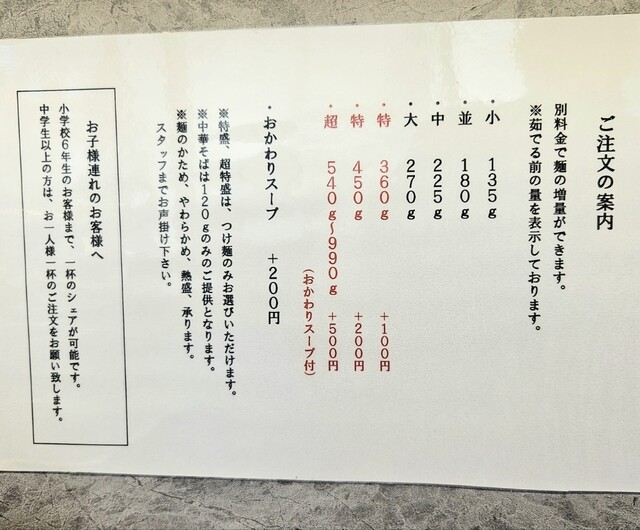 ご注文の案内
別料金で麺の増量ができます。
※茹でる前の量を表示しております。
・小 135g
・並 180g
・中 225g
・大 270g
・特 360g +100円
・特 450g +200円
・超 540g〜990g +500円
(おかわりスープ付)
・おかわりスープ +200円
※特盛、超特盛は、つけ麺のみお選びいただけます。
※中華そばは120gのみのご提供となります。
※麺のかため、やわらかめ、熱盛、承ります。
スタッフまでお声掛け下さい。
お子様連れのお客様へ
小学校6年生のお客様まで、一杯のシェアが可能です。
中学生以上の方は、お一人様一杯のご注文をお願い致します。